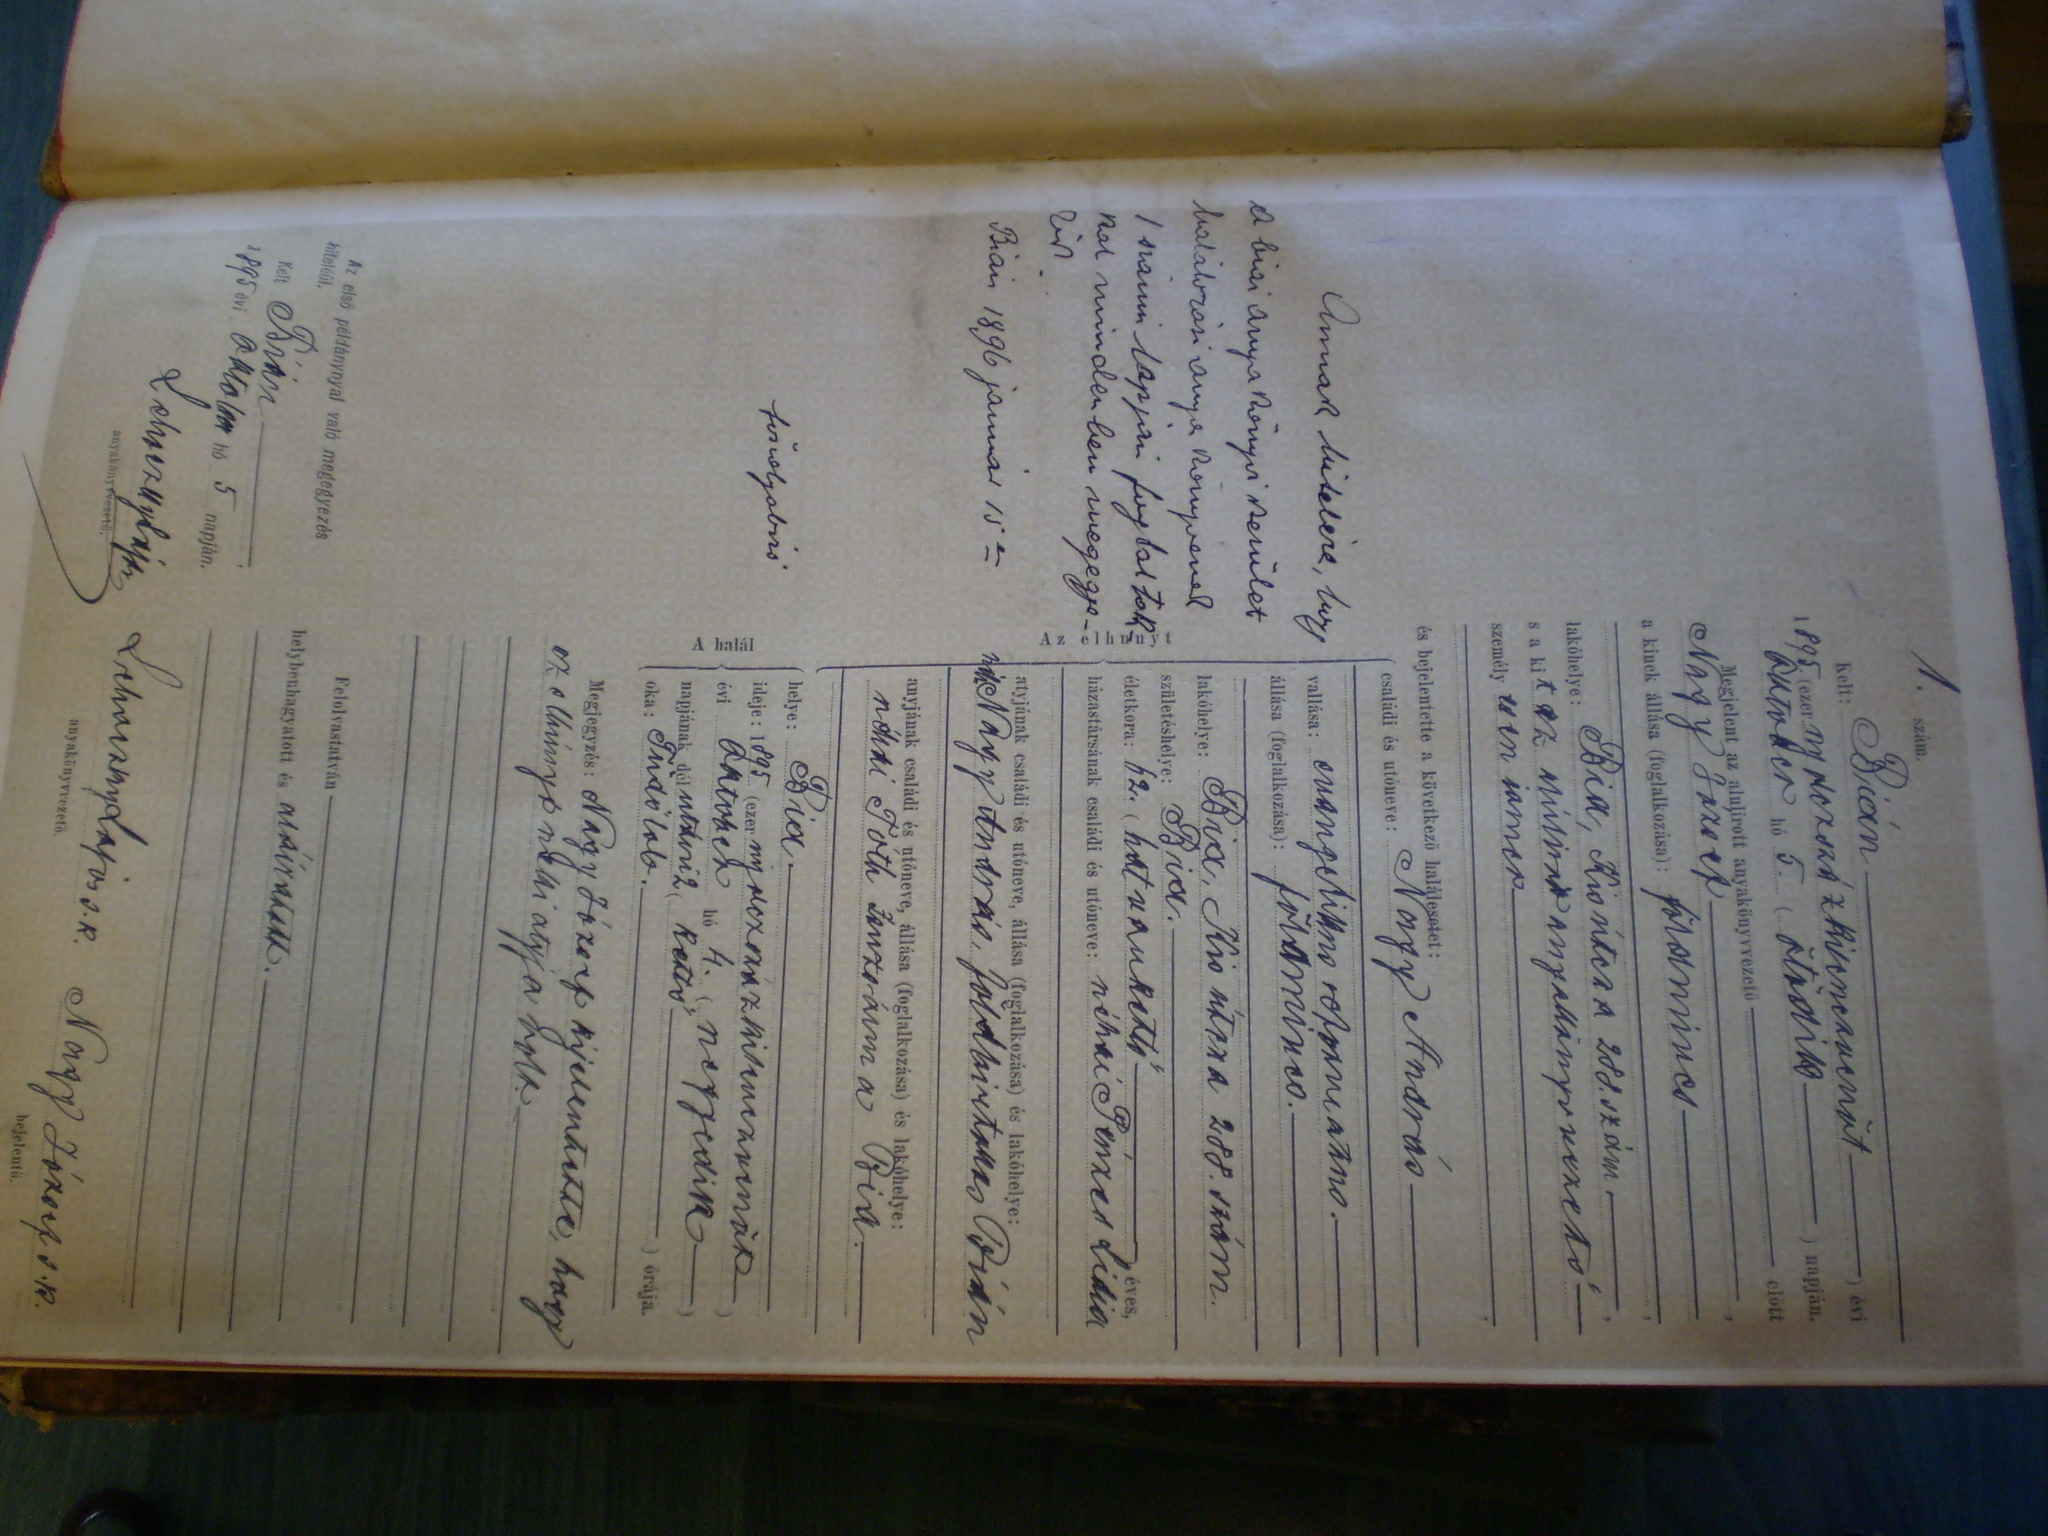 1. szám.
Kelt: Bián
1895. (ezer nyolczszáz kilenczvenöt) évi
Október hó 5. (ötödik) napján.
Megjelent az alulirott anyakönyvvezető előtt
Nagy József,
a kinek állása (foglalkozása): földmives
lakóhelye: Bia, Kis utcza 288. szám,
s a kit az
anyakönyvvezető
személy ismer,
és bejelentette a következő halálesetet:
Az elhunyt
családi és utóneve: Nagy András
vallása: evangelikus református.
állása (foglalkozása): földmives.
lakóhelye: Bia, Kis utcza 288. szám.
születéshelye: Bia.
életkora: 62. (hatvankettő) éves,
házastársának családi és utóneve: néhai Pénzes Lidia
atyjának családi és utóneve, állása (foglalkozása) és lakóhelye:
néh. Nagy András, földbirtokos Bián
anyjának családi és utóneve, állása (foglalkozása) és lakóhelye:
néhai Tóth Zsuzsánna Bia.
A halál
helye: Bia.
ideje: 1895. (ezer nyolczszáz kilenczvenöt)
évi Október hó 4. (negyedik)
napjának dél után 2 (kettő) órája.
oka: Tüdőlob.
Megjegyzés: Nagy József kijelentette, hogy
az elhunyt néki atyja volt.
Felolvastatván
helybenhagyatott és aláiratott.
Lajos s.k. Nagy József s.k.
anyakönyvvezető. bejelentő.
Annak hitelére, hogy
a biai anyakönyvi kerület
halálozási anyakönyvének
1 számu lapján foglaltak-
kal mindenben megegye-
Bián 1896 január 15-én
főszolgabiró
Az első példánynyal való megegyezés
hiteléül.
Kelt Bián
1895 évi Október hó 5 napján.
anyakönyvvezető.